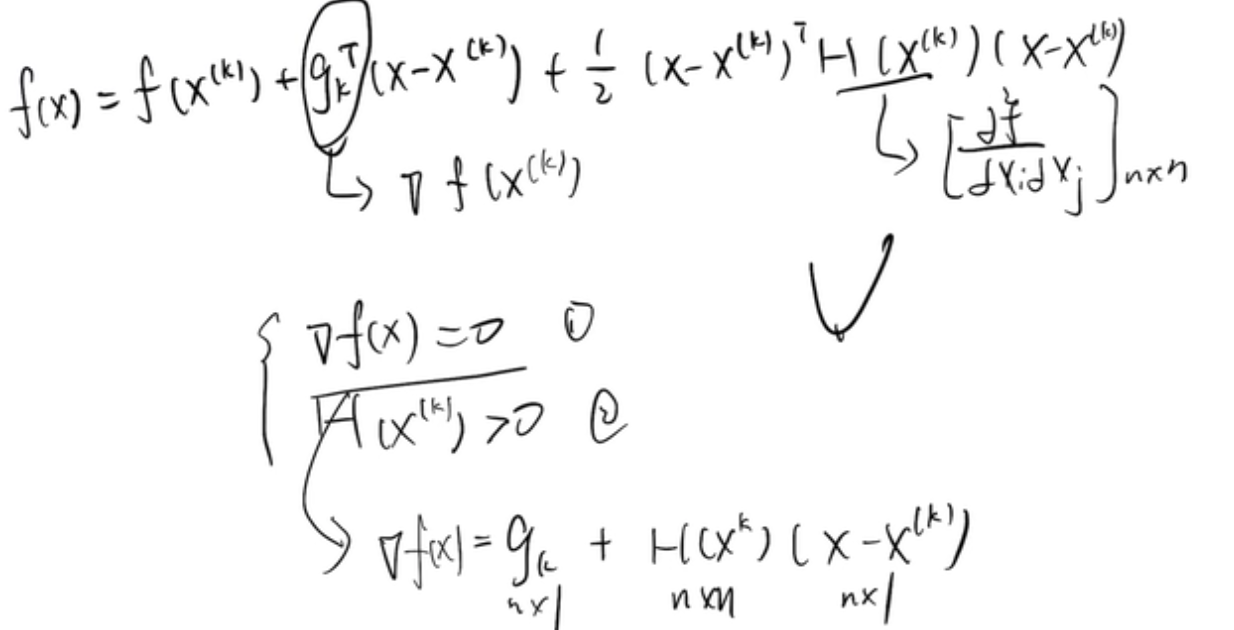 f(x) = f(x^{(k)}) + g_k^T (x-x^{(k)}) + \frac{1}{2} (x-x^{(k)})^T H(x^{(k)}) (x-x^{(k)})
↳ ∇f(x^{(k)}) ↳ [\frac{∂^2 f}{∂x_i∂x_j}]_{n×n}
{ ∇f(x) = 0 ①
H(x^{(k)}) > 0 ②
∇f(x) = g_k + H(x^k) (x-x^{(k)})
n×1 n×n n×1